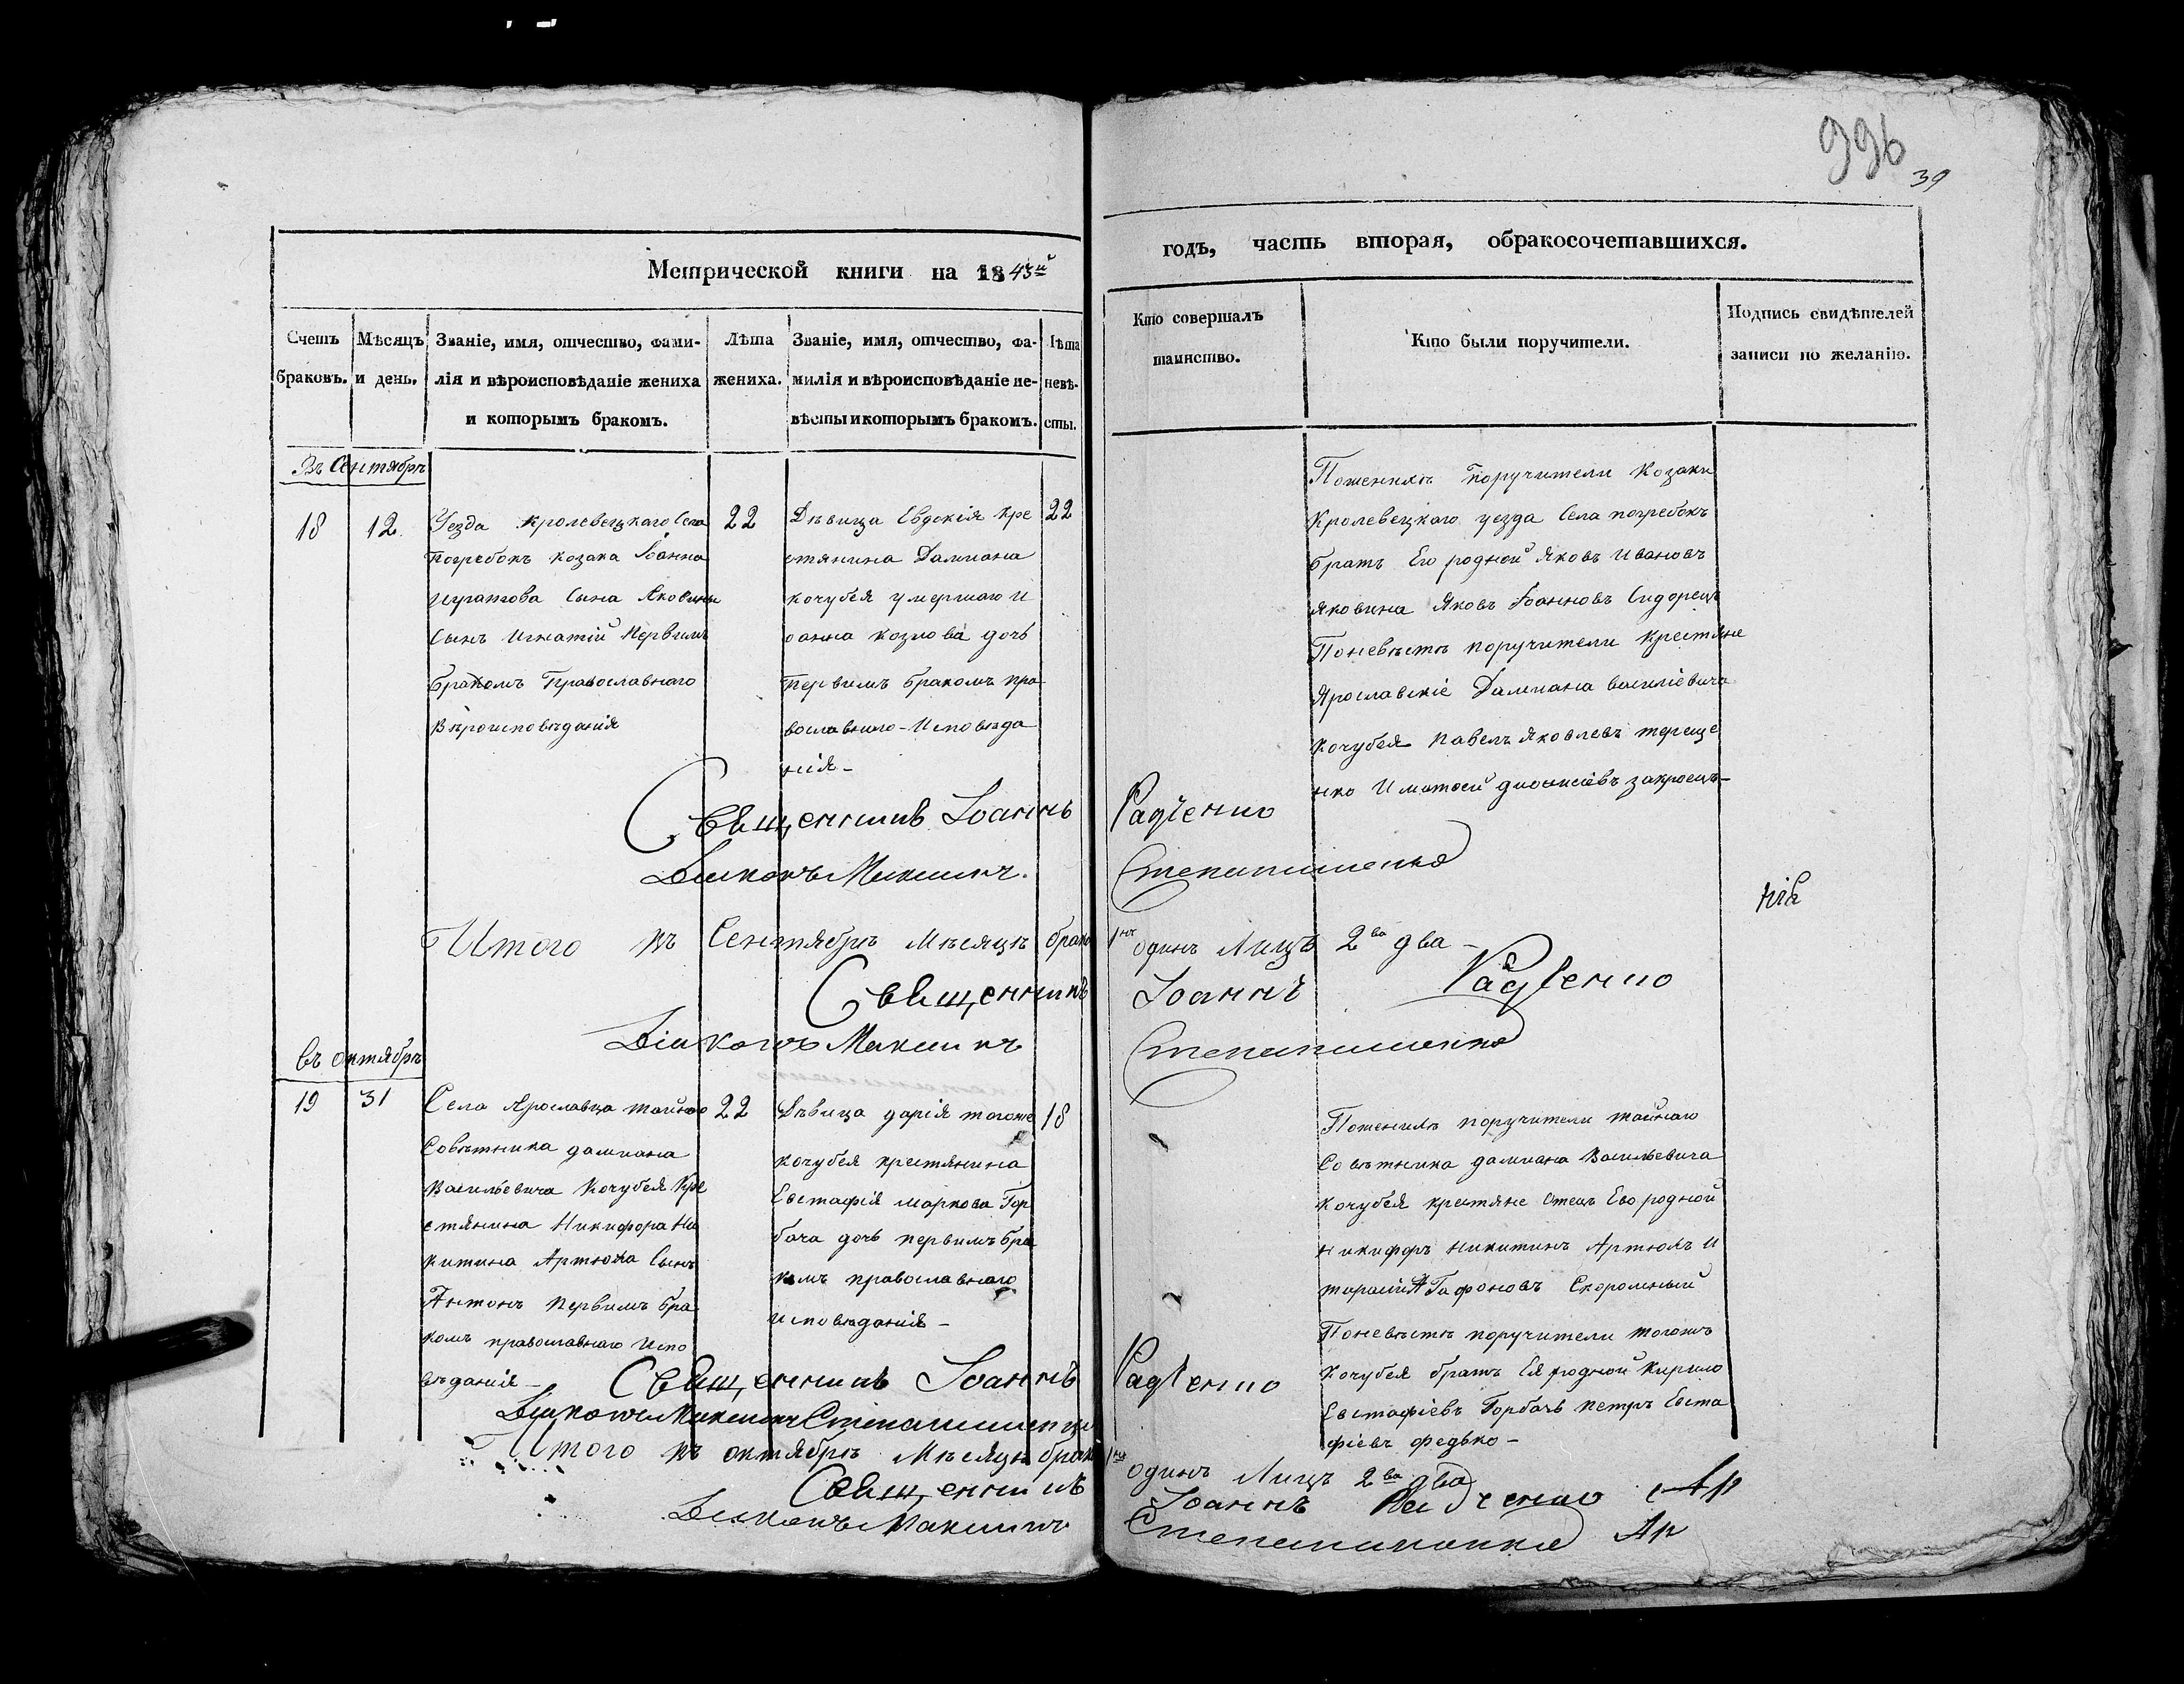 996
39
Метрической книги на 1843й
годъ, часть вторая, обракосочетавшихся.
Счетъ браковъ.
Мѣсяцъ и день.
Званіе, имя, отчество, фами-
лія и вѣроисповѣданіе жениха
и которымъ бракомъ.
Лѣта
жениха.
Званіе, имя, отчество, фа-
милія и вѣроисповѣданіе не-
вѣсты и которымъ бракомъ.
Лѣта
невѣ-
сты.
Кто совершалъ
таинство.
Кто были поручители.
Подпись свидѣтелей
записи по желанію.
Въ Сентябрѣ
18
12
Уезда Кролевецкаго Села
Погребокъ козака Іоанна
сына Яковины
сынъ Игнатій Первимъ
бракомъ Православнаго
Вѣроисповѣданія
22
Дѣвица Евдокія Кре
стянина Даміана
Кочубея умершаго И
оанна Козлова дочь
первимъ бракомъ пра
вославнаго Исповѣда
нія
22
Поженихѣ Поручители Козаки
Кролевецкаго уезда Села погребокъ
братъ Его родной Яковъ Ивановъ
Яковина Яковъ Іоанновъ Сидорецъ
Поневѣстѣ поручители Крестяне
Ярославскіе Даміана Василіевича
Кочубея Павелъ Яковлевъ тереще
нко И матвей закроецъ
Священникъ Іоаннъ Радченко
Діяконъ Максимъ Степаниненко
Итого въ Сентябрѣ Мѣсяцѣ бракъ 1нъ одинъ Лицъ 2ва два
Священникъ Іоаннъ Радченко
Діяконъ Максимъ Степаниненко
въ октябрѣ
19
31
Села Ярославца тайнаго
Совѣтника даміана
Васильевича Кочубея Кре
стянина Никифора Ни
китина Артюха Сынъ
Антонъ Первимъ бра
комъ православнаго Испо
вѣданія
22
Дѣвица дарія тогоже
Кочубея крестянина
Евстафія Маркова Гор
бача дочь первимъ бра
комъ православнаго
исповѣданія
18
Поженихѣ поручители тайнаго
Совѣтника даміана Васильевича
Кочубея крестяне Отецъ Его родной
Никифоръ Никитинъ Артюхъ И
Агафоновъ Скоромный
Поневѣстѣ поручители тогожъ
Кочубея братъ Ея родной Кирило
Евстафіевъ Горбачъ петръ Евста
фіевъ федько
Священникъ Іоаннъ Радченко
Діяконъ Максимъ Степаниненко
Итого въ октябрѣ Мѣсяцѣ бракъ 1нъ одинъ Лицъ 2ва два
Священникъ Іоаннъ Радченко
Діяконъ Максимъ Степаниненко